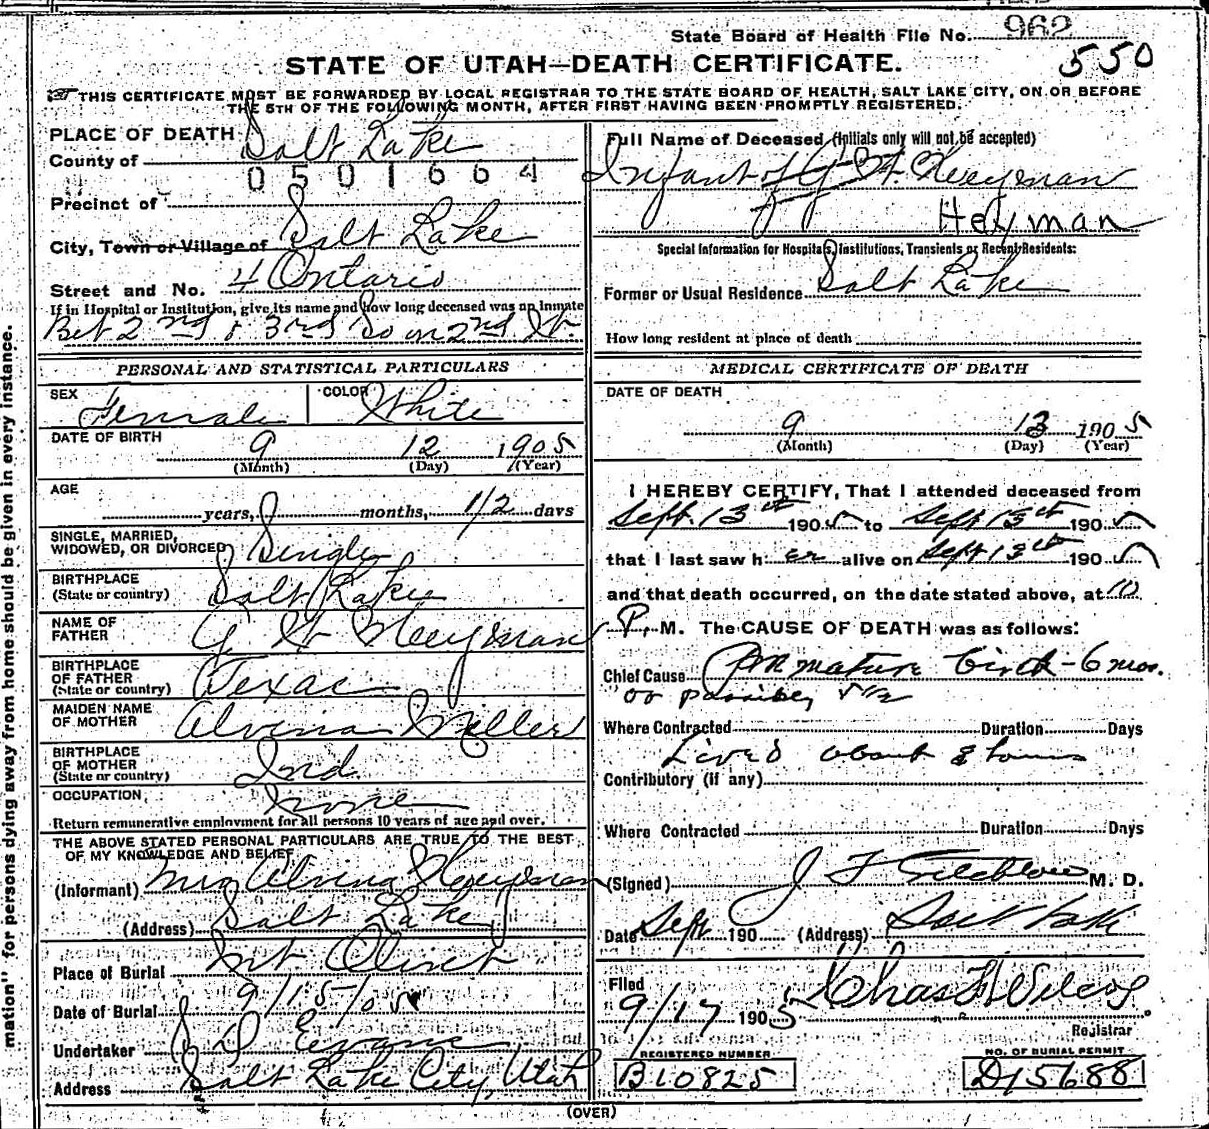 State Board of Health File No. 962
550
STATE OF UTAH—DEATH CERTIFICATE.
THIS CERTIFICATE MUST BE FORWARDED BY LOCAL REGISTRAR TO THE STATE BOARD OF HEALTH, SALT LAKE CITY, ON OR BEFORE
THE 5TH OF THE FOLLOWING MONTH, AFTER FIRST HAVING BEEN PROMPTLY REGISTERED.
mation" for persons dying away from home should be given in every instance.
PLACE OF DEATH
County of Salt Lake
0501664
Precinct of
City, Town or Village of Salt Lake
Street and No. 4 Ontario
If in Hospital or Institution, give its name and how long deceased was an inmate
Bet 2nd & 3rd So on 2nd St.
PERSONAL AND STATISTICAL PARTICULARS
SEX Female COLOR White
DATE OF BIRTH 9 12 1905
(Month) (Day) (Year)
AGE
years, months, 1/2 days
SINGLE, MARRIED,
WIDOWED, OR DIVORCED Single
BIRTHPLACE
(State or country) Salt Lake
NAME OF
FATHER G. H. Heeyman
BIRTHPLACE
OF FATHER
(State or country) Texas
MAIDEN NAME
OF MOTHER Alvina Miller
BIRTHPLACE
OF MOTHER
(State or country) Ind.
OCCUPATION none
Return remunerative employment for all persons 10 years of age and over.
THE ABOVE STATED PERSONAL PARTICULARS ARE TRUE TO THE BEST
OF MY KNOWLEDGE AND BELIEF
(Informant) Mrs Alvina Heeyman
(Address) Salt Lake
Place of Burial Mt Olivet
Date of Burial 9/15/05
Undertaker S D Evans
Address Salt Lake City, Utah
Full Name of Deceased (Initials only will not be accepted)
Infant of G. H. Heeyman
Heyman
Special Information for Hospitals, Institutions, Transients or Recent Residents:
Former or Usual Residence Salt Lake
How long resident at place of death
MEDICAL CERTIFICATE OF DEATH
DATE OF DEATH
9 13 1905
(Month) (Day) (Year)
I HEREBY CERTIFY, That I attended deceased from
Sept. 13th 1905 to Sept 13th 1905
that I last saw her alive on Sept 13th 1905
and that death occurred, on the date stated above, at 10
P. M. The CAUSE OF DEATH was as follows:
Chief Cause Premature birth - 6 mos.
or possibly 5 1/2
Where Contracted Duration Days
Lived about 8 hours
Contributory (if any)
Where Contracted Duration Days
(Signed) J F M. D.
Date Sept 190 (Address) Salt Lake
Filed
9/17 1905 Chas H Wilcox
Registrar
REGISTERED NUMBER
B10825
NO. OF BURIAL PERMIT
D15688
(OVER)